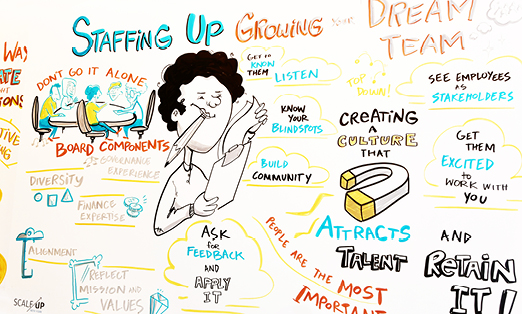 STAFFING UP GROWING YOUR
DREAM
TEAM
WAY
DON'T GO IT ALONE
BOARD COMPONENTS
GOVERNANCE
EXPERIENCE
DIVERSITY
FINANCE
EXPERTISE
ALIGNMENT
REFLECT
MISSION AND
VALUES
SCALE UP
GET TO
KNOW
THEM
LISTEN
KNOW
YOUR
BLINDSPOTS
BUILD
COMMUNITY
ASK
for
FEEDBACK
AND
APPLY
IT
TOP
DOWN!
CREATING
A
CULTURE
THAT
ATTRACTS
TALENT
AND
RETAIN
IT!
PEOPLE ARE THE MOST
IMPORTANT
SEE EMPLOYEES
AS
STAKEHOLDERS
GET
THEM
EXCITED
to
WORK WITH
YOU